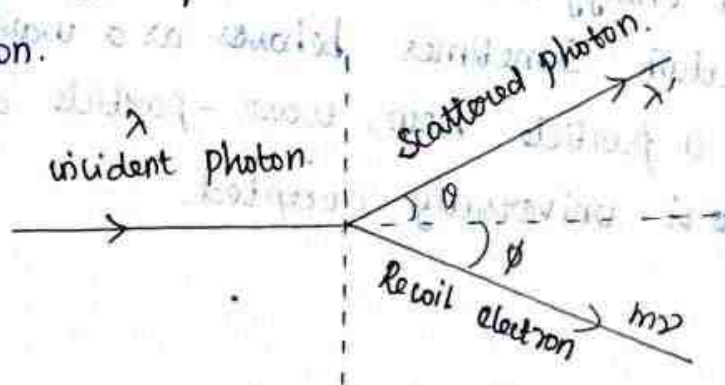 on.
λ
incident photon.
scattered photon.
λ'
θ
φ
Recoil electron
mv